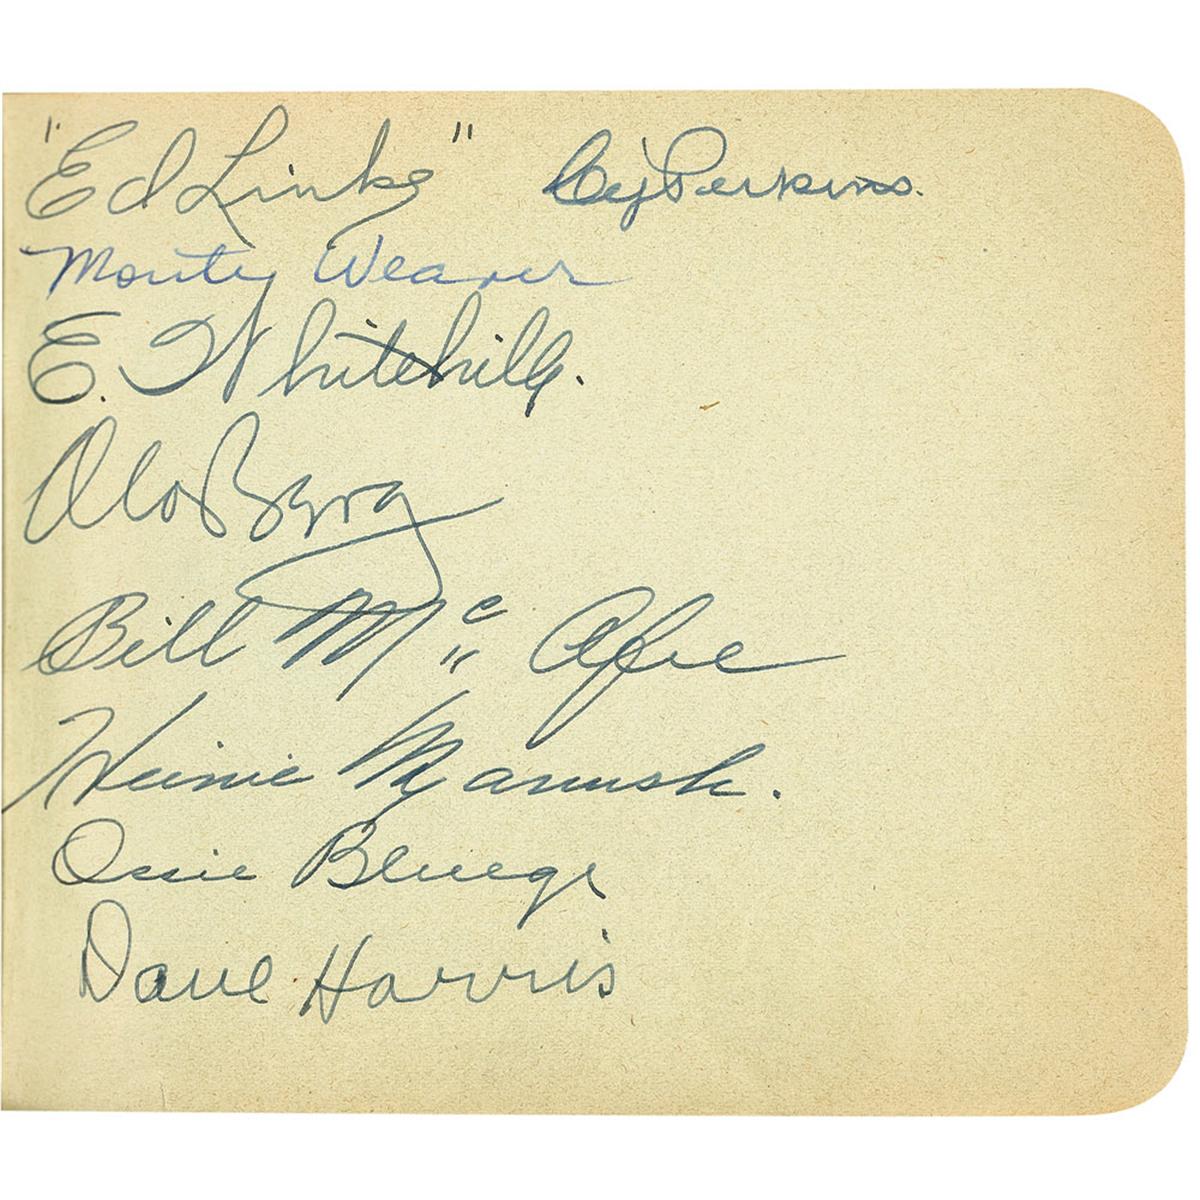 "Ed Linke" Cy Perkins.
Monty Weaver
E. Whitehill.
Moe Berg
Bill Mc Afee
Heinie Manush.
Ossie Bluege
Dave Harris